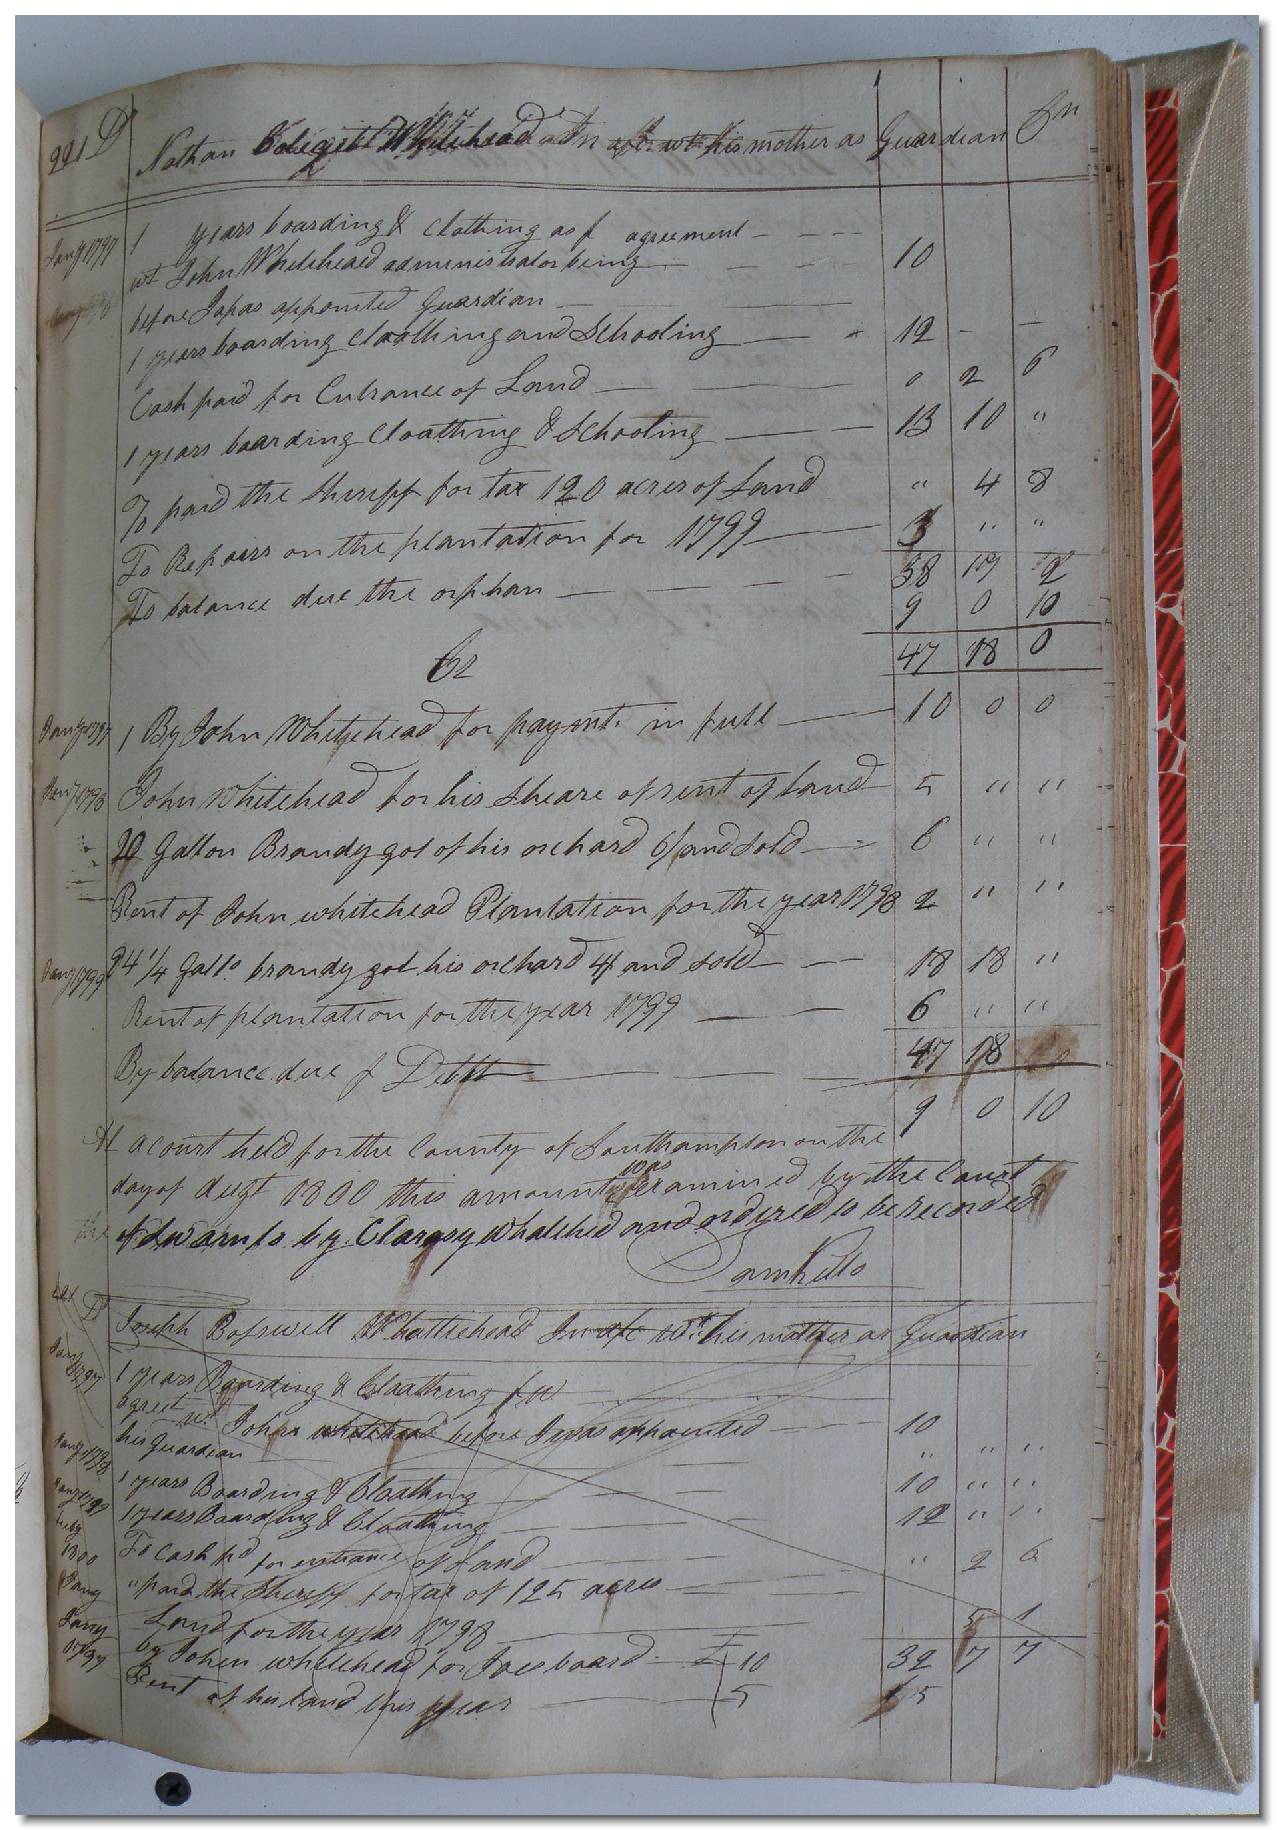 221 Dr Nathan Whitehead his mother as Guardian
Jany 1797 1 years boarding & Clothing as p agreement
wt John Whitehead administrator being 10
before I was appointed Guardian
1 years boarding cloathing and Schooling 12 - -
Cash paid for Entrance of Land 0 2 6
1 years boarding Cloathing & Schooling 13 10 "
To paid the Sheriff for tax 120 acres of Land " 4 8
To Repairs on the plantation for 1799 3 " "
38 17 2
To balance due the orphan 9 0 10
47 18 0
Cr
Jany 1797 1 By John Whitehead for payment in full 10 0 0
Jany 1798 John Whitehead for his Sheare of rent of land 5 " "
20 Gallon Brandy got of his orchard 6/ and sold 6 " "
Rent of John whitehead Plantation for the year 1798 2 " "
Jany 1799 94 1/4 Galls brandy got his orchard 4/ and sold 18 18 "
Rent of plantation for the year 1799 6 " "
47 18
By balance due p Debt 9 0 10
At a court held for the County of Southampton on the
day of Augt 1800 this amount was examined by the Court
and ordered to be recorded
Samkells
Dr Joseph Boswell Whattehead wt his mother as Guardian
Jany 1797 1 years Boarding & Cloathing
agreet wt John whitehead before I was appointed 10
his Guardian " " "
Jany 1798 1 years Boarding & Cloathing 10 " "
Jany 1799 1 years Boarding & Cloathing 12 " "
1800 To cash pd for entrance of Land " 2 6
" paid the Sheriff for tax of 125 acres
Land for the year 1798 5 1
Jany 1797 by John whitehead for Joes board £ 10 32 7 7
Rent of his land this year 5 15